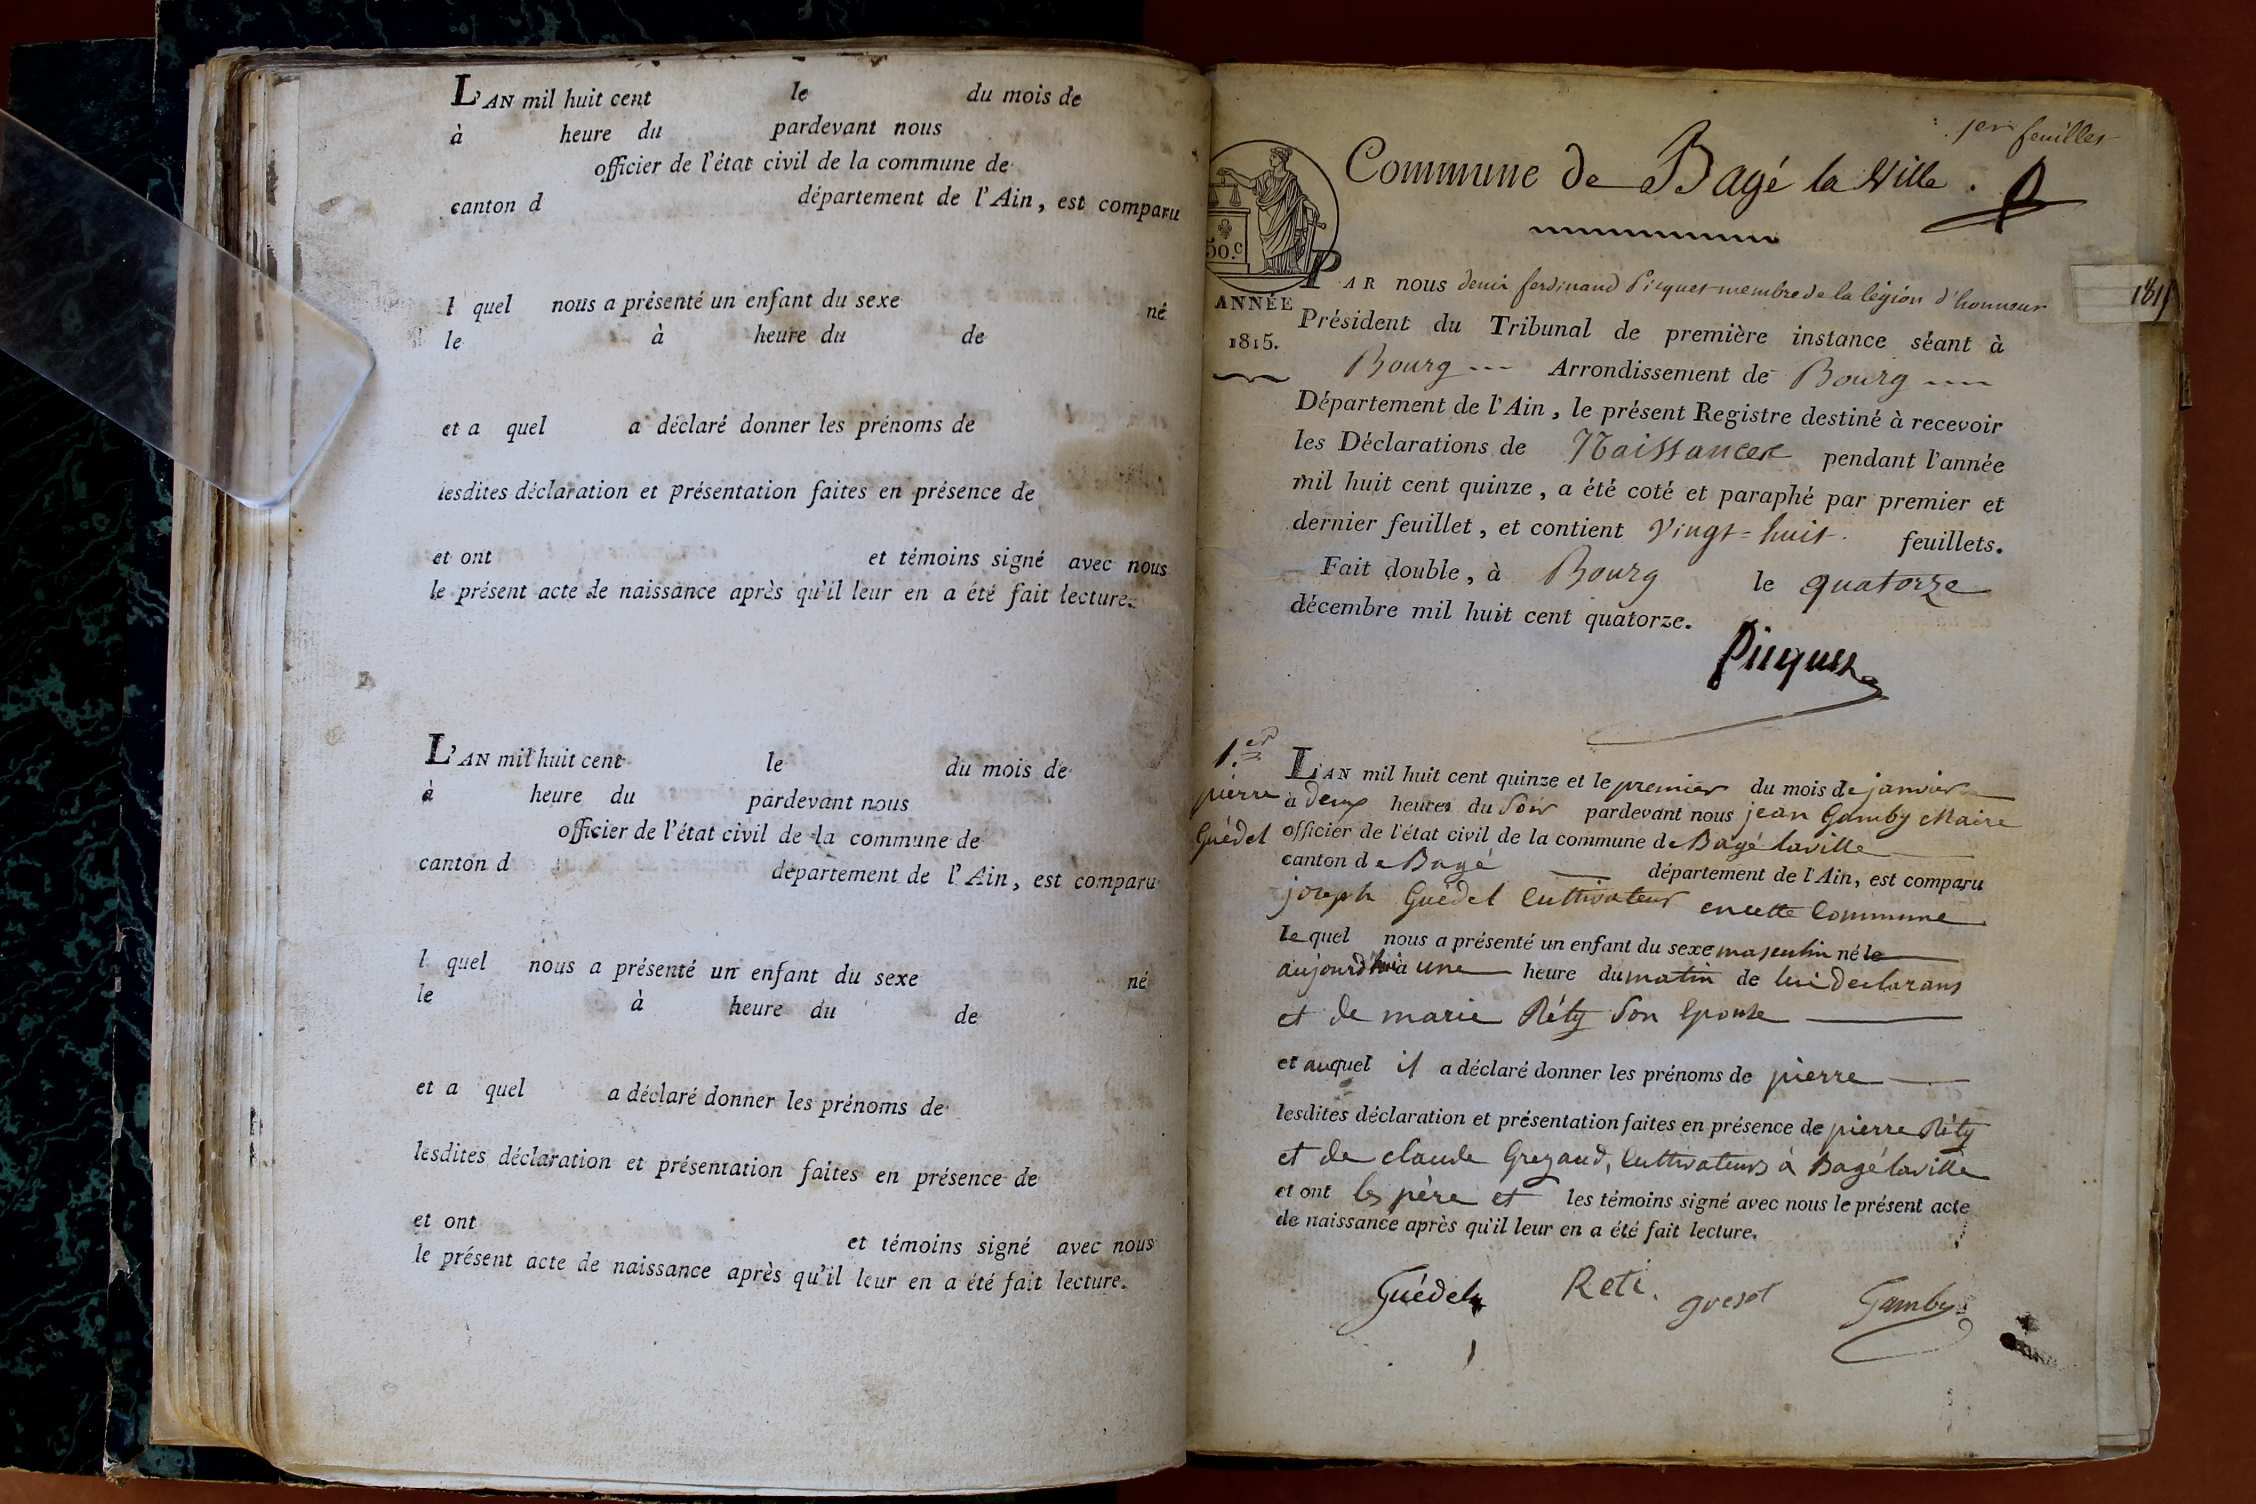 L'AN mil huit cent le du mois de
à heure du pardevant nous
officier de l'état civil de la commune de
canton d département de l'Ain, est comparu
l quel nous a présenté un enfant du sexe né
le à heure du de
et a quel a déclaré donner les prénoms de
lesdites déclaration et présentation faites en présence de
et ont et témoins signé avec nous
le présent acte de naissance après qu'il leur en a été fait lecture.
L'AN mil huit cent le du mois de
à heure du pardevant nous
officier de l'état civil de la commune de
canton d département de l'Ain, est comparu
l quel nous a présenté un enfant du sexe né
le à heure du de
et a quel a déclaré donner les prénoms de
lesdites déclaration et présentation faites en présence de
et ont et témoins signé avec nous
le présent acte de naissance après qu'il leur en a été fait lecture.
1er feuillet
Commune de Bagé la Ville.
50.c
ANNÉE
1815.
PAR nous denis ferdinand Picquet membre de la légion d'honneur
Président du Tribunal de première instance séant à
Bourg Arrondissement de Bourg
Département de l'Ain, le présent Registre destiné à recevoir
les Déclarations de Naissances pendant l'année
mil huit cent quinze, a été coté et paraphé par premier et
dernier feuillet, et contient vingt=huit feuillets.
Fait double, à Bourg le quatorze
décembre mil huit cent quatorze.
Picquet
1815
1.er
pierre
Guédel
L'AN mil huit cent quinze et le premier du mois de janvier
à deux heures du soir pardevant nous jean Gamby Maire
officier de l'état civil de la commune de Bagé laville
canton de Bagé département de l'Ain, est comparu
joseph Guédel Cultivateur en cette Commune
lequel nous a présenté un enfant du sexe masculin né le
aujourd'hui à une heure du matin de lui declarans
et de marie Réty son Epouse
et auquel il a déclaré donner les prénoms de pierre
lesdites déclaration et présentation faites en présence de pierre Réty
et de claude Grezaud, Cultivateurs à Bagé laville
et ont les père et les témoins signé avec nous le présent acte
de naissance après qu'il leur en a été fait lecture.
Guédel Reti. Gamby